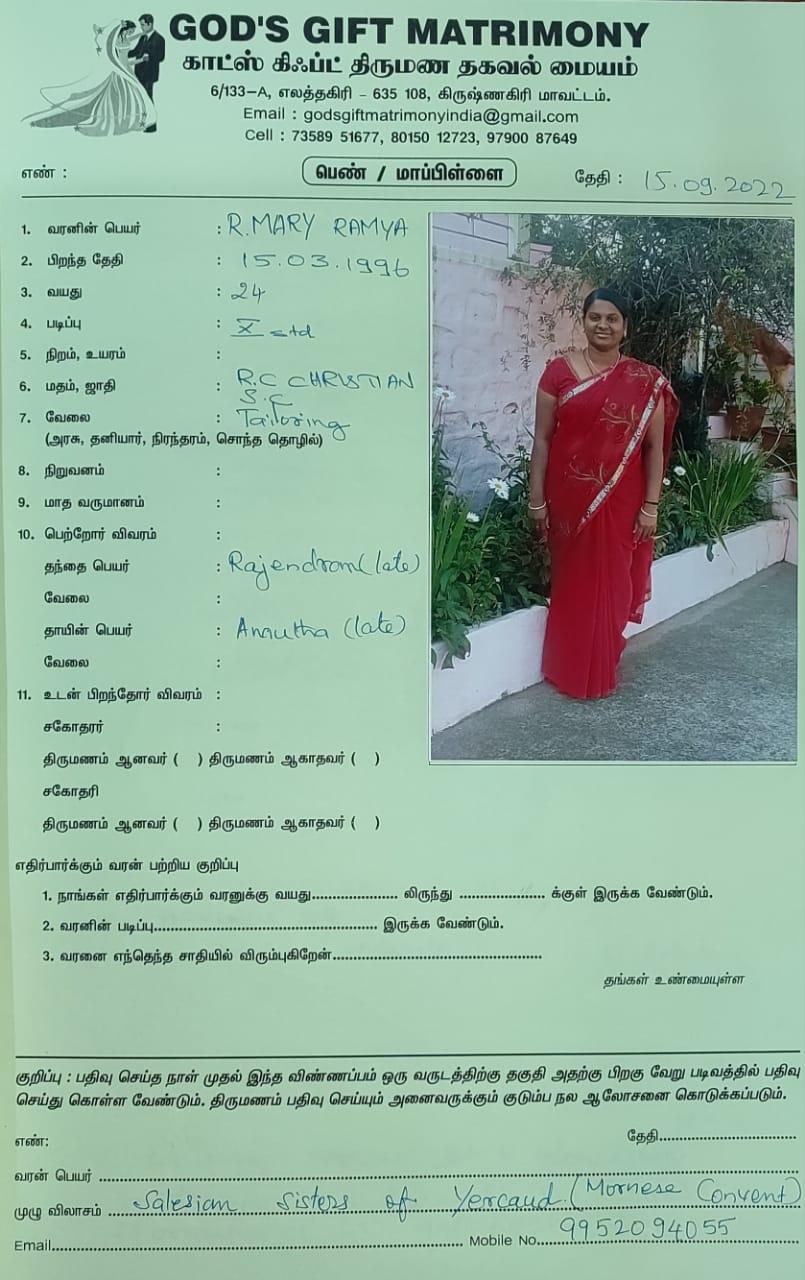 GOD'S GIFT MATRIMONY
காட்ஸ் கிஃப்ட் திருமண தகவல் மையம்
6/133-A, எலத்தகிரி - 635 108, கிருஷ்ணகிரி மாவட்டம்.
Email : godsgiftmatrimonyindia@gmail.com
Cell : 73589 51677, 80150 12723, 97900 87649
எண் : பெண் / மாப்பிள்ளை தேதி : 15.09.2022
1. வரனின் பெயர் : R. MARY RAMYA
2. பிறந்த தேதி : 15.03.1996
3. வயது : 24
4. படிப்பு : X std
5. நிறம், உயரம் :
6. மதம், ஜாதி : R.C CHRISTIAN
S.C
7. வேலை : Tailoring
(அரசு, தனியார், நிரந்தரம், சொந்த தொழில்)
8. நிறுவனம் :
9. மாத வருமானம் :
10. பெற்றோர் விவரம் :
தந்தை பெயர் : Rajendran (late)
வேலை :
தாயின் பெயர் : (late)
வேலை :
11. உடன் பிறந்தோர் விவரம் :
சகோதரர் :
திருமணம் ஆனவர் ( ) திருமணம் ஆகாதவர் ( )
சகோதரி
திருமணம் ஆனவர் ( ) திருமணம் ஆகாதவர் ( )
எதிர்பார்க்கும் வரன் பற்றிய குறிப்பு
1. நாங்கள் எதிர்பார்க்கும் வரனுக்கு வயது..................... லிருந்து ..................... க்குள் இருக்க வேண்டும்.
2. வரனின் படிப்பு....................................................... இருக்க வேண்டும்.
3. வரனை எந்தெந்த சாதியில் விரும்புகிறேன்....................................................
தங்கள் உண்மையுள்ள
குறிப்பு : பதிவு செய்த நாள் முதல் இந்த விண்ணப்பம் ஒரு வருடத்திற்கு தகுதி அதற்கு பிறகு வேறு படிவத்தில் பதிவு
செய்து கொள்ள வேண்டும். திருமணம் பதிவு செய்யும் அனைவருக்கும் குடும்ப நல ஆலோசனை கொடுக்கப்படும்.
எண்: தேதி..................................
வரன் பெயர் ....................................................
முழு விலாசம் Salesian Sisters of Yercaud. (Mornese Convent)
Email.................................................... Mobile No. 9952094055